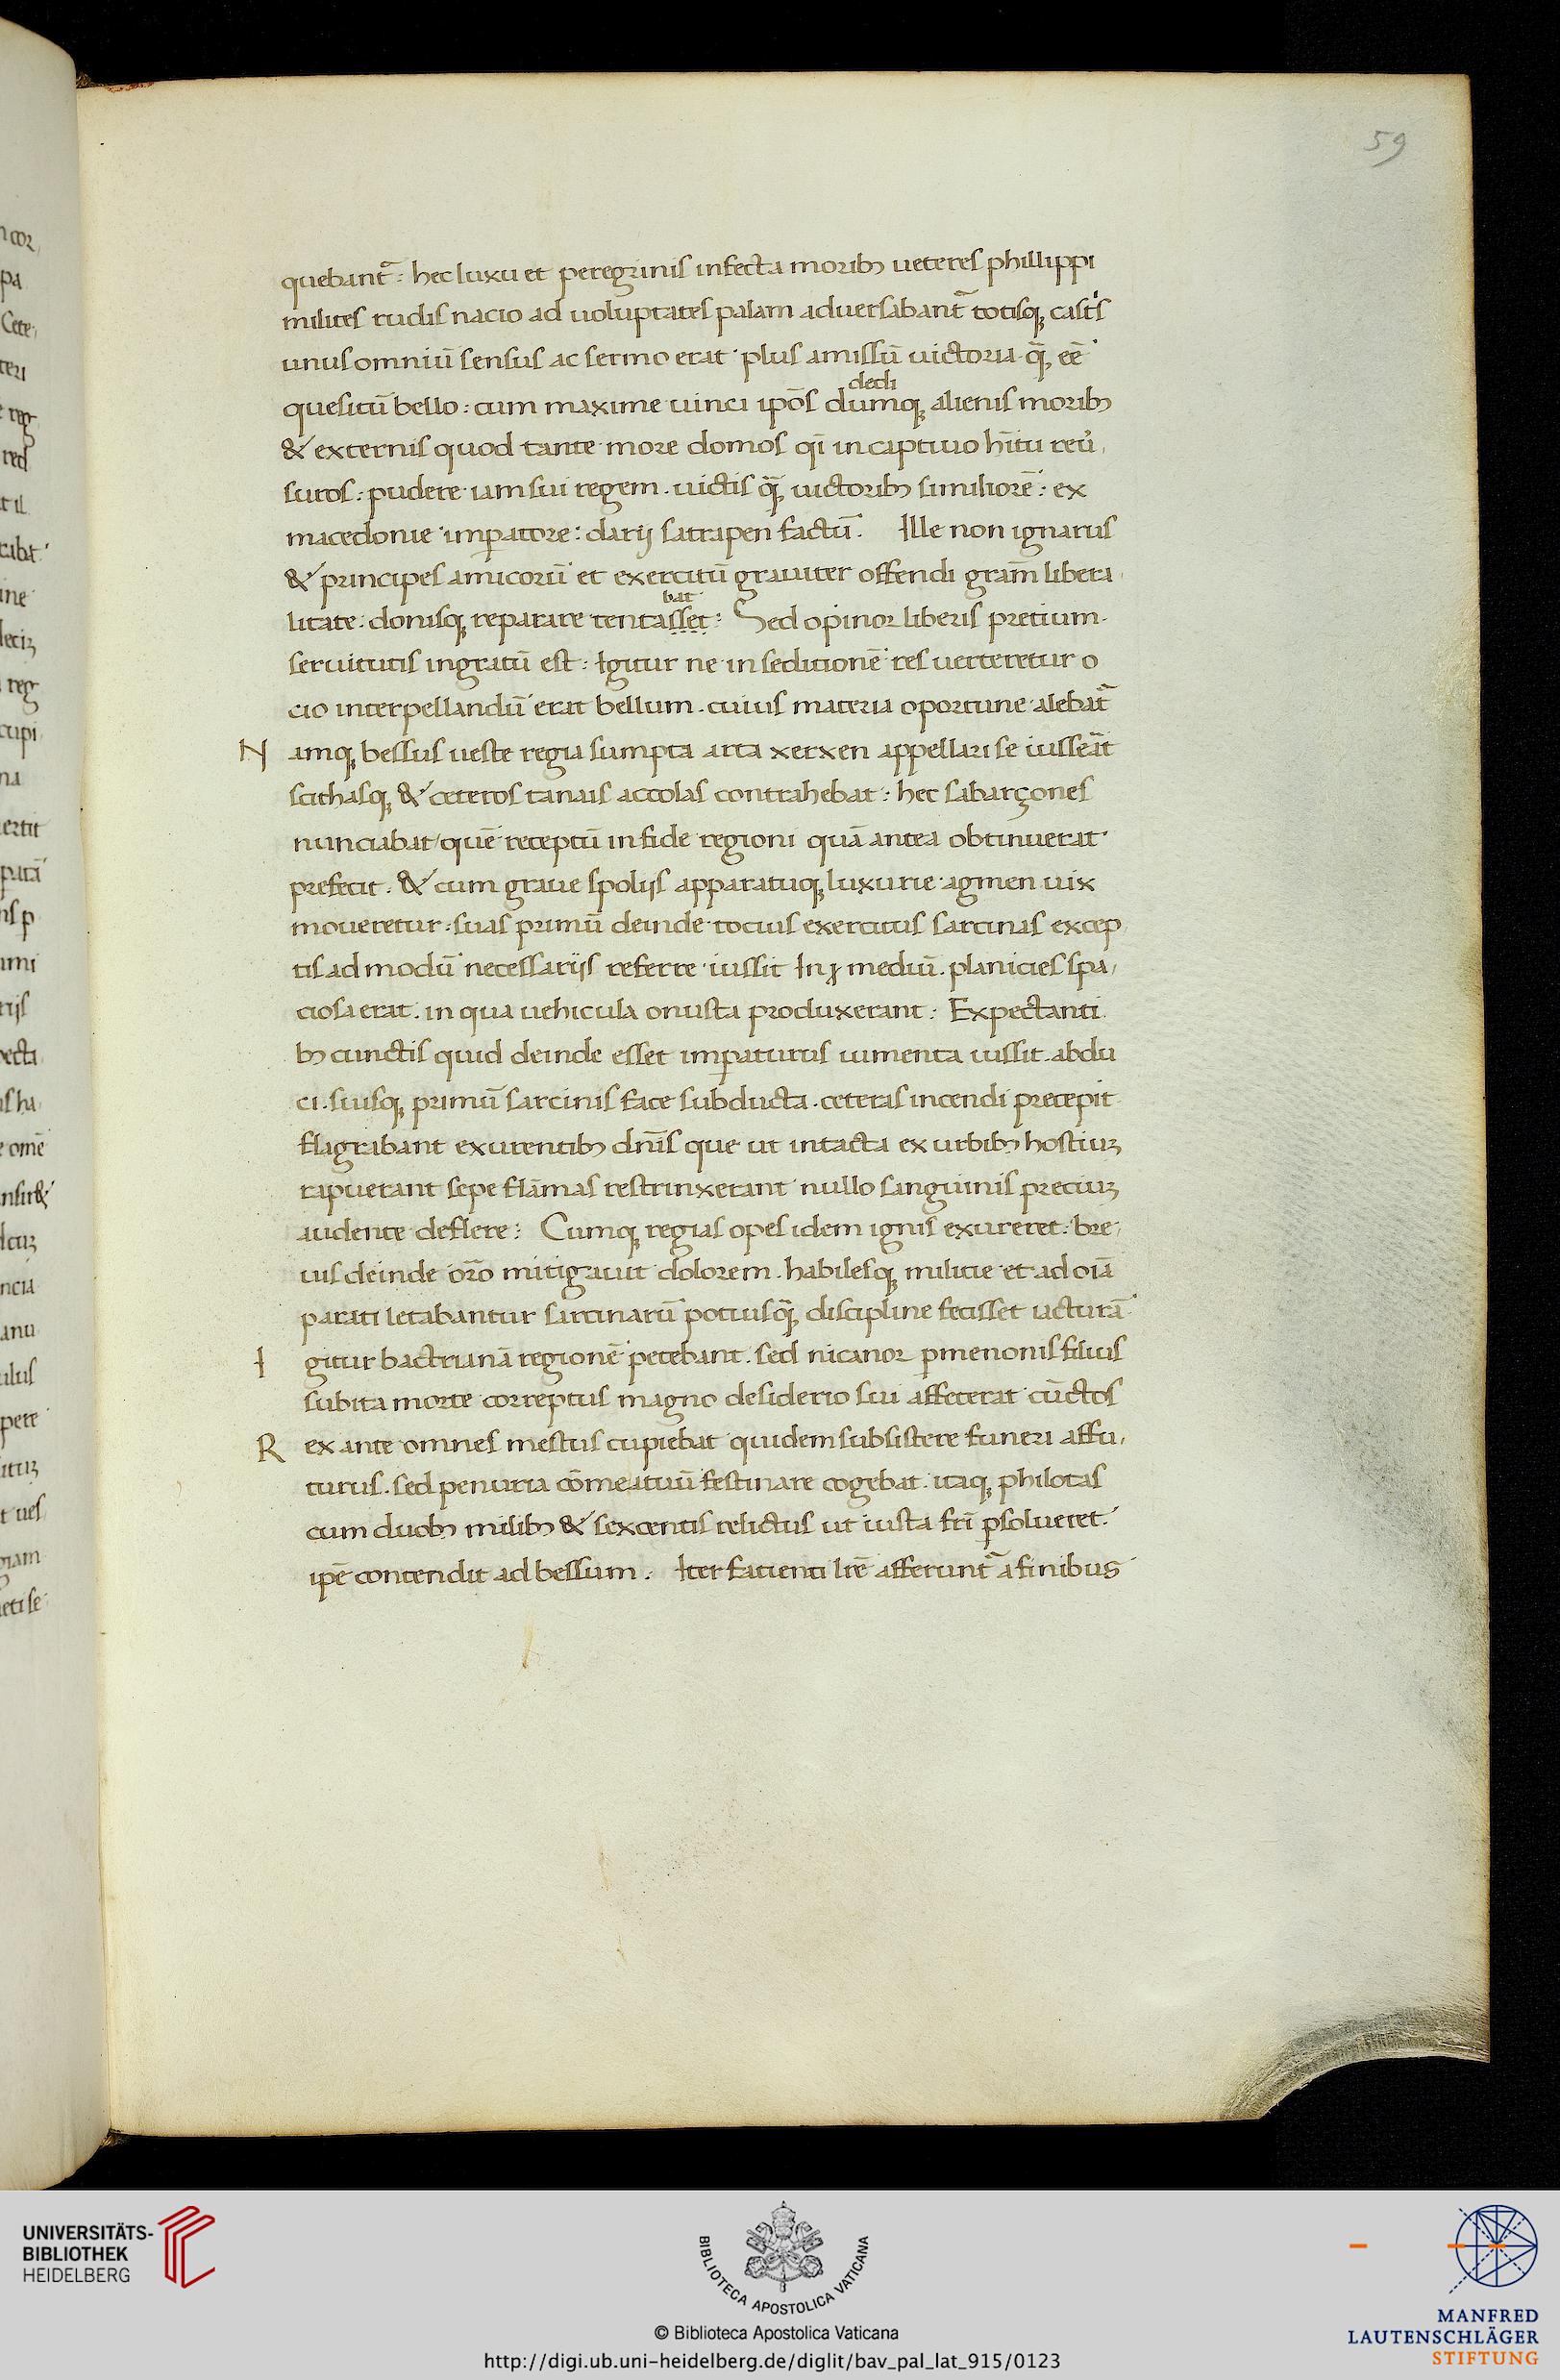 59
quebant᷑: hec luxu et peregrinis infecta morib; ueteres phillippi
milites rudis nacio ad uoluptates palam aduersabant᷑ totisq; cast͛s
unus omniū sensus ac sermo erat plus amissū uictoria q̄; eē
quesitū bello: cum maxime uinci ip̄os dumq; alienis morib;
dedi
& externis quod tante more domos q̄i in captiuo h̄itu reu͛
suros: pudere iam sui regem. uictis q̄; uictorib; similiorē: ex
macedonie imꝑatore: darij satrapen factū. Ille non ignarus
& principes amicorū et exercitū grauiter offendi gram̄ libera
litate: donisq; reparare tentasset: Sed opinor liberis pretium
bat
seruitutis ingratū est: Igitur ne in seditionē res uerteretur o
cio interpellandū erat bellum. cuius materia oportune alebat᷑
Namq; bessus ueste regia sumpta arta xerxen appellari se iusseāt
scithasq; & ceteros tanais accolas contrahebat: hec sabarçones
nunciabat quē receptū in fide regioni quā antea obtinuerat
prefecit. & cum graue spolijs apparatuq; luxurie agmen uix
moueretur: suas primū deinde tocius exercitus sarcinas excep
tis ad modū necessarijs referre iussit In ꝯ mediū. planicies spa
ciosa erat. in qua uehicula onusta produxerant: Expectanti
b; cunctis quid deinde esset imꝑaturus iumenta iussit. abdu
ci. suisq; primū sarcinis face subducta. ceteras incendi precepit
flagrabant exurentib; dn̄is que ut intacta ex urbib; hostiuȝ
rapuerant sepe flāmas restrinxerant nullo sanguinis preciuȝ
audente deflere: Cumq; regias opes idem ignis exureret: bre
uis deinde or̄o mitigauit dolorem. habilesq; militie et ad oīa
parati letabantur sarcinarū potiusq̄; discipline fecisset iacturā
Igitur bactrianā regionē petebant. sed nicanor ꝑmenonis filius
subita morte correptus magno desiderio sui affecerat cūctos
Rex ante omnes mestus cupiebat quidem subsistere funeri affu
turus. sed penuria cōmeatuū festinare cogebat. itaq; philotas
cum duob; milib; & sexcentis relictus ut iusta fr̄i ꝑsolueret.
ip̄e contendit ad bessum. Iter facienti lr̄e afferunt᷑ a finibus
UNIVERSITÄTS-
BIBLIOTHEK
HEIDELBERG
BIBLIOTECA APOSTOLICA VATICANA
© Biblioteca Apostolica Vaticana
http://digi.ub.uni-heidelberg.de/diglit/bav_pal_lat_915/0123
MANFRED
LAUTENSCHLÄGER
STIFTUNG